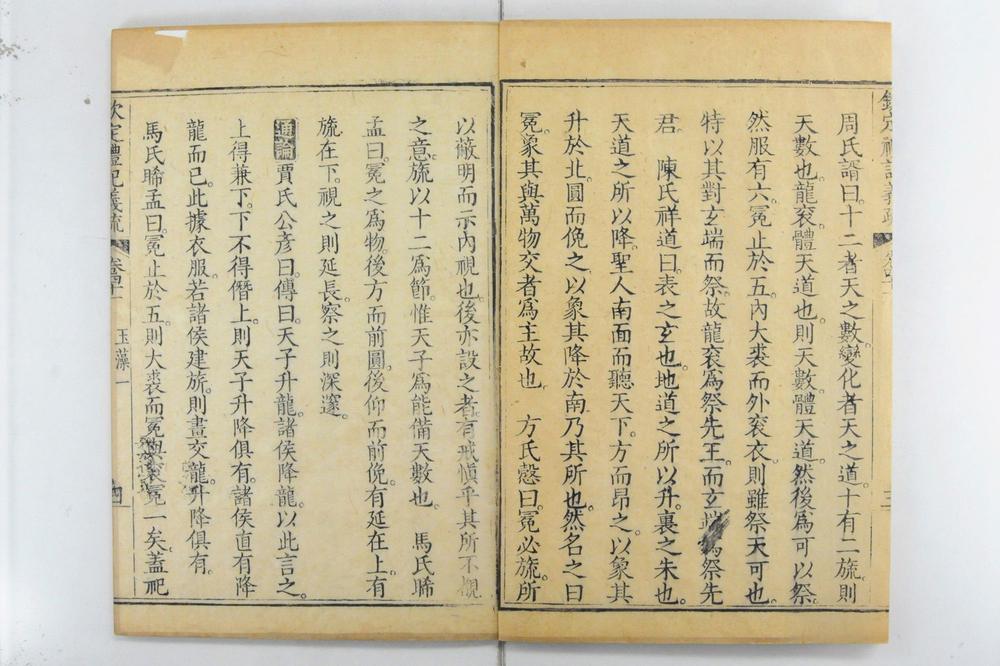 欽定禮記義疏
周氏諝曰。十二者天之數。變化者天之道。十有二旒。則
天數也。龍衮。體天道也。則天數體天道。然後爲可以祭。
然服有六。冕止於五。內大裘而外衮衣。則雖祭天可也。
特以其對玄端而祭。故龍衮爲祭先王。而玄端爲祭先
君。 陳氏祥道曰。表之玄也。地道之所以升。裏之朱也。
天道之所以降。聖人南面而聽天下。方而昂之。以象其
升於北。圓而俛之。以象其降於南。乃其所也。然名之曰
冕。象其與萬物交者爲主故也。 方氏慤曰。冕必旒。所
以蔽明而示內視也。後亦設之者。有戒愼乎其所不覩
之意。旒以十二爲節。惟天子爲能備天數也。 馬氏晞
孟曰。冕之爲物。後方而前圓。後仰而前俛。有延在上。有
旒在下。視之則延長。察之則深邃。
通論 賈氏公彥曰。傳曰。天子升龍。諸侯降龍。以此言之。
上得兼下。下不得僭上。則天子升降俱有。諸侯直有降
龍而已。此據衣服。若諸侯建旂。則畫交龍。升降俱有。
馬氏晞孟曰。冕止於五。則大裘而冕。與衮冕一矣。蓋祀
欽定禮記義疏 卷四十一 玉藻一 四